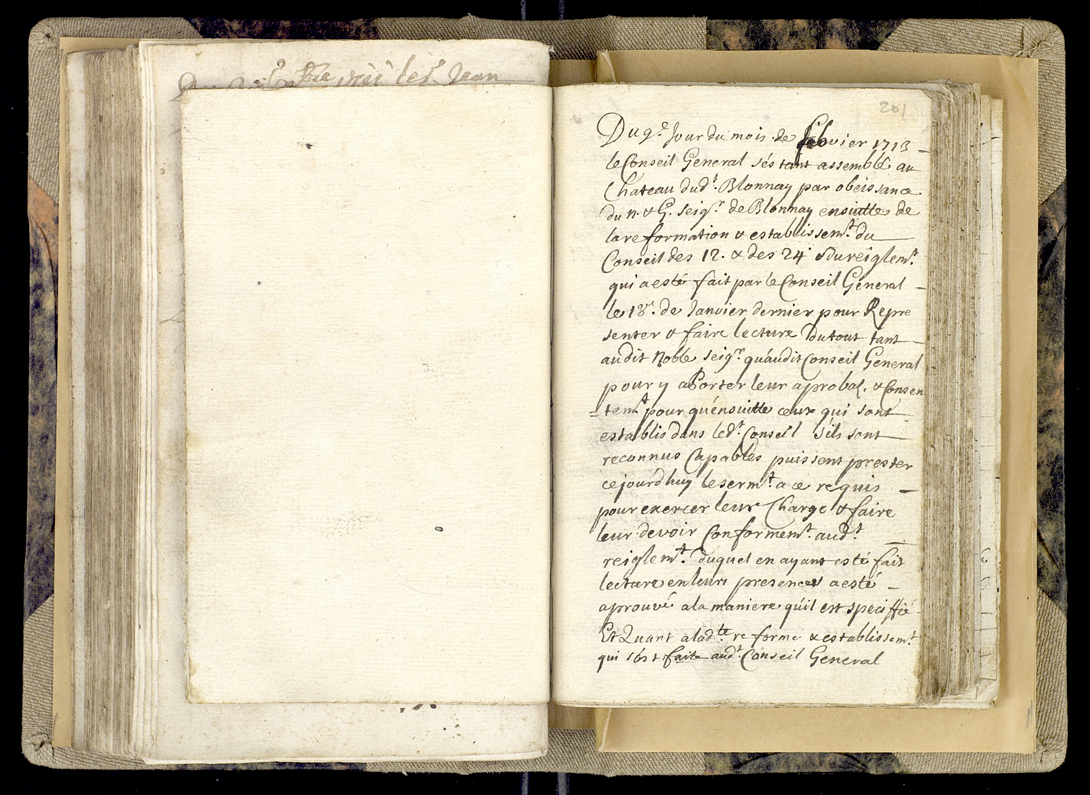 les.^r Jean
201
Du 9.^e Jour du mois de febvrier 1713
le Conseil General s'estant assemblé au
Chateau dud.^t Blonnay par obeissance
du n. & G. seig.^r de Blonnay ensuitte de
la reformation & establissem.^t du
Conseil des 12. & des 24 & du reiglem.^t
qui a esté fait par le Conseil General
le 18.^e de Janvier dernier pour Repre
senter & faire lecture du tout tant
audit Noble seig.^r qu'audit Conseil General
pour y aporter leur aprobaõ. & Consen
=tem.^t pour qu'ensuitte ceux qui sont
establis dans led.^t Conseil s'ils sont
reconnus Capables puissent prester
cejourd'huy le serm.^t a ce requis
pour exercer leur Charge & faire
leur devoir Conformem.^t aud.^t
reiglem.^t duquel en ayant esté fait
lecture en leurs presences a esté
aprouvé a la maniere qu'il est speciffié
Et Quant a lad.^te reforme & establissem.^t
qui s'est faite aud.^t Conseil General